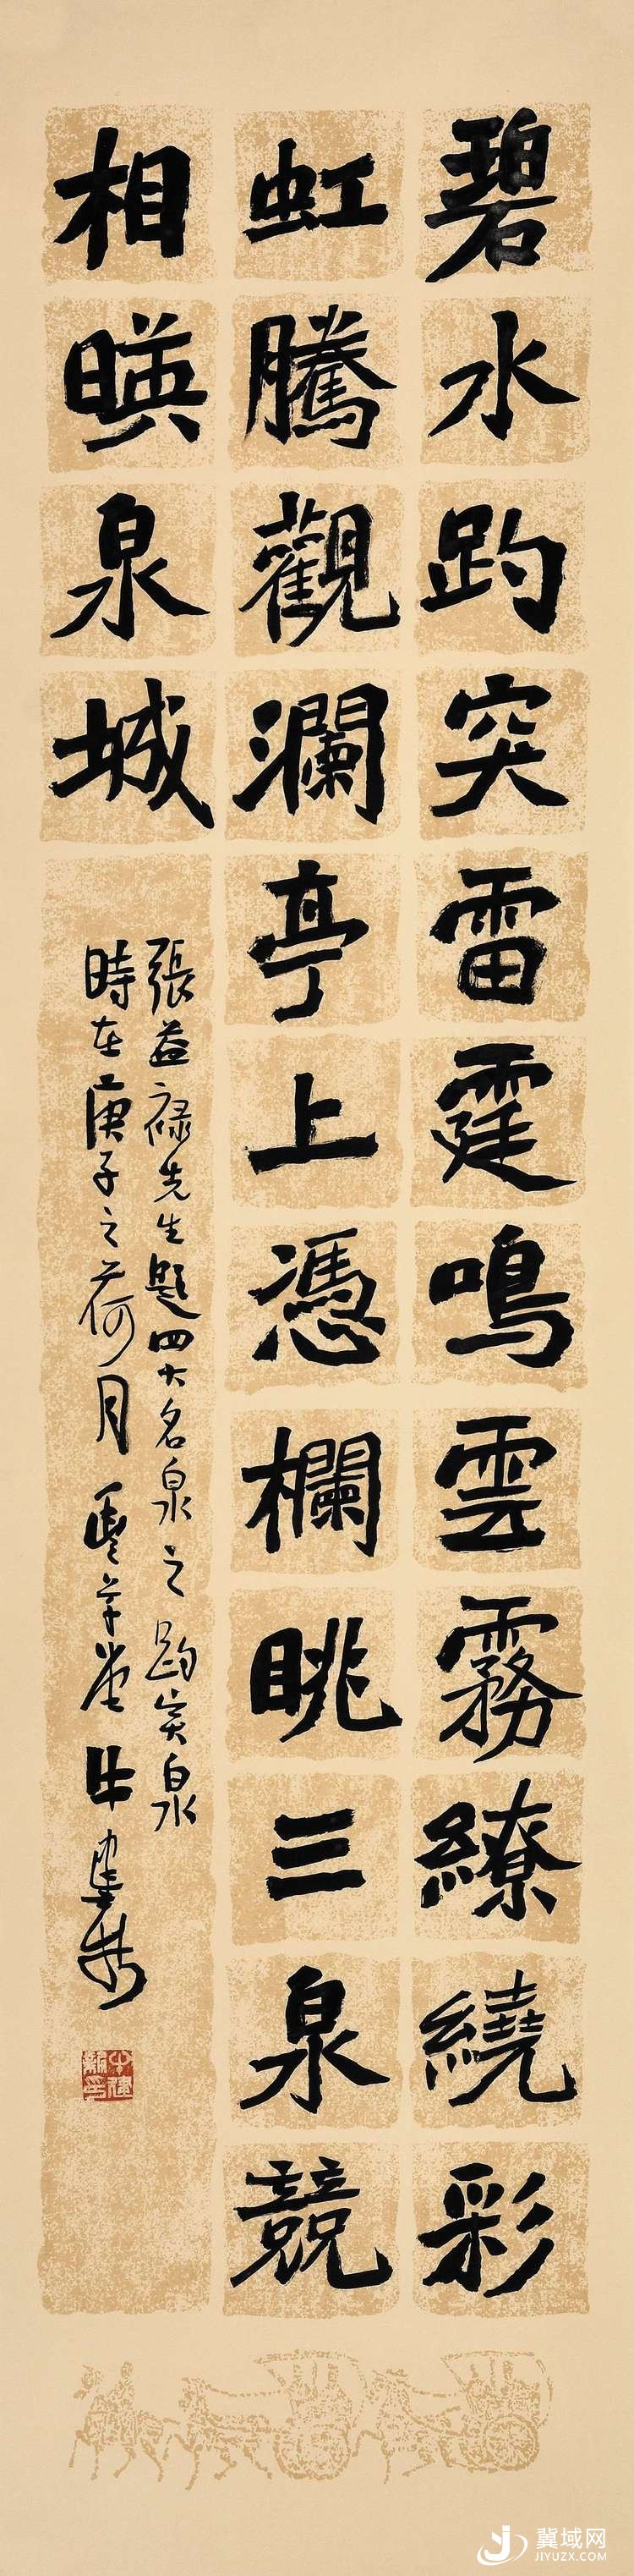 碧水趵突雷霆鳴雲霧繚繞彩
虹騰觀瀾亭上憑欄眺三泉競
相暎泉城
張益祿先生題四大名泉之趵突泉
時在庚子之荷月
牛建新
牛建新印
冀域网
JIYUZX.COM